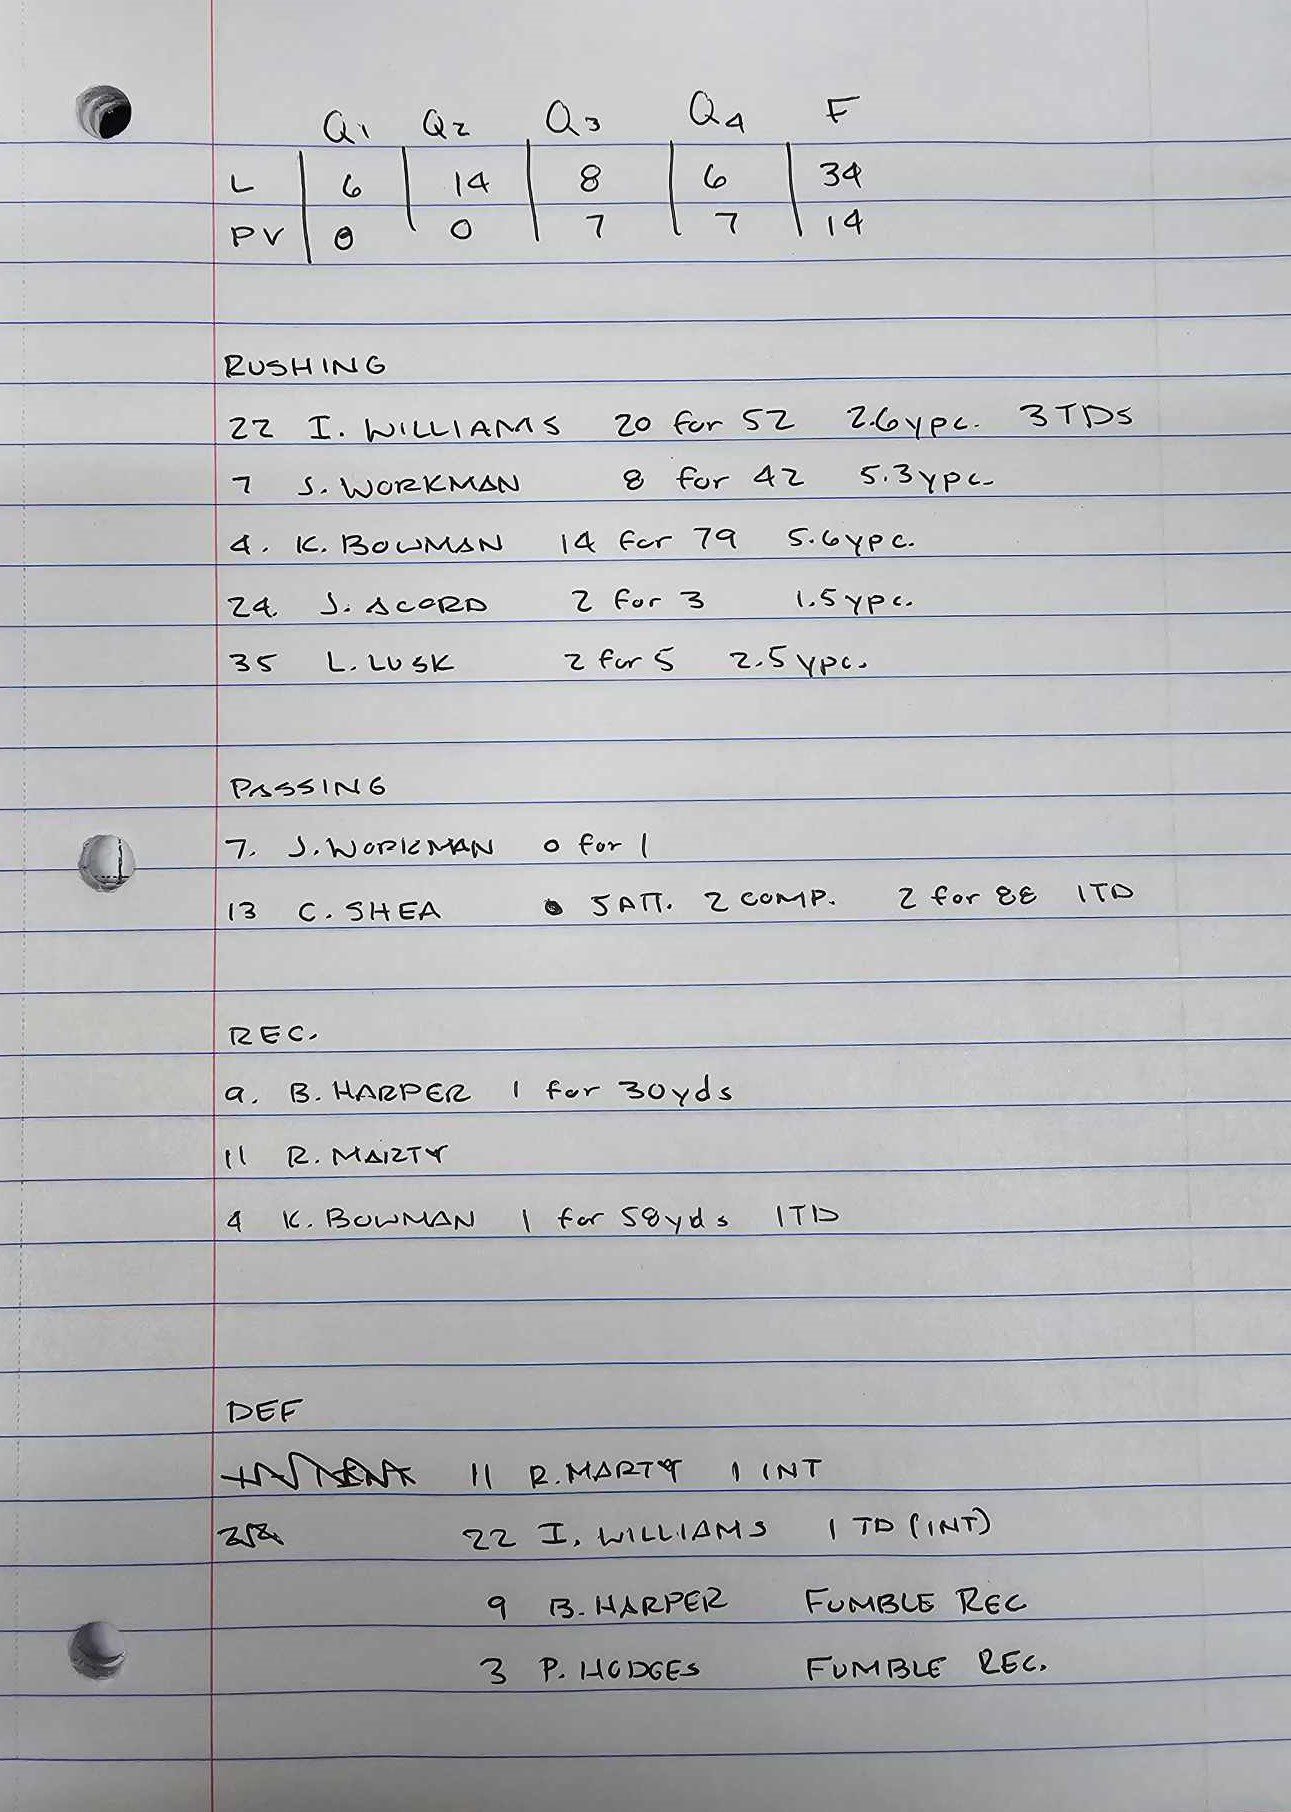 Q1 Q2 Q3 Q4 F
L 6 14 8 6 34
PV 0 0 7 7 14
RUSHING
22 I. WILLIAMS 20 for 52 2.6ypc. 3TDS
7 J. WORKMAN 8 for 42 5.3ypc.
4. K. BOWMAN 14 for 79 5.6ypc.
24. J. ACORD 2 for 3 1.5ypc.
35 L. LUSK 2 for 5 2.5ypc.
PASSING
7. J. WORKMAN 0 for 1
13 C. SHEA 5 ATT. 2 COMP. 2 for 88 1TD
REC.
9. B. HARPER 1 for 30yds
11 R. MARTY
4 K. BOWMAN 1 for 58yds 1TD
DEF
11 R. MARTY 1 INT
22 I. WILLIAMS 1 TD (INT)
9 B. HARPER FUMBLE REC
3 P. HODGES FUMBLE REC.